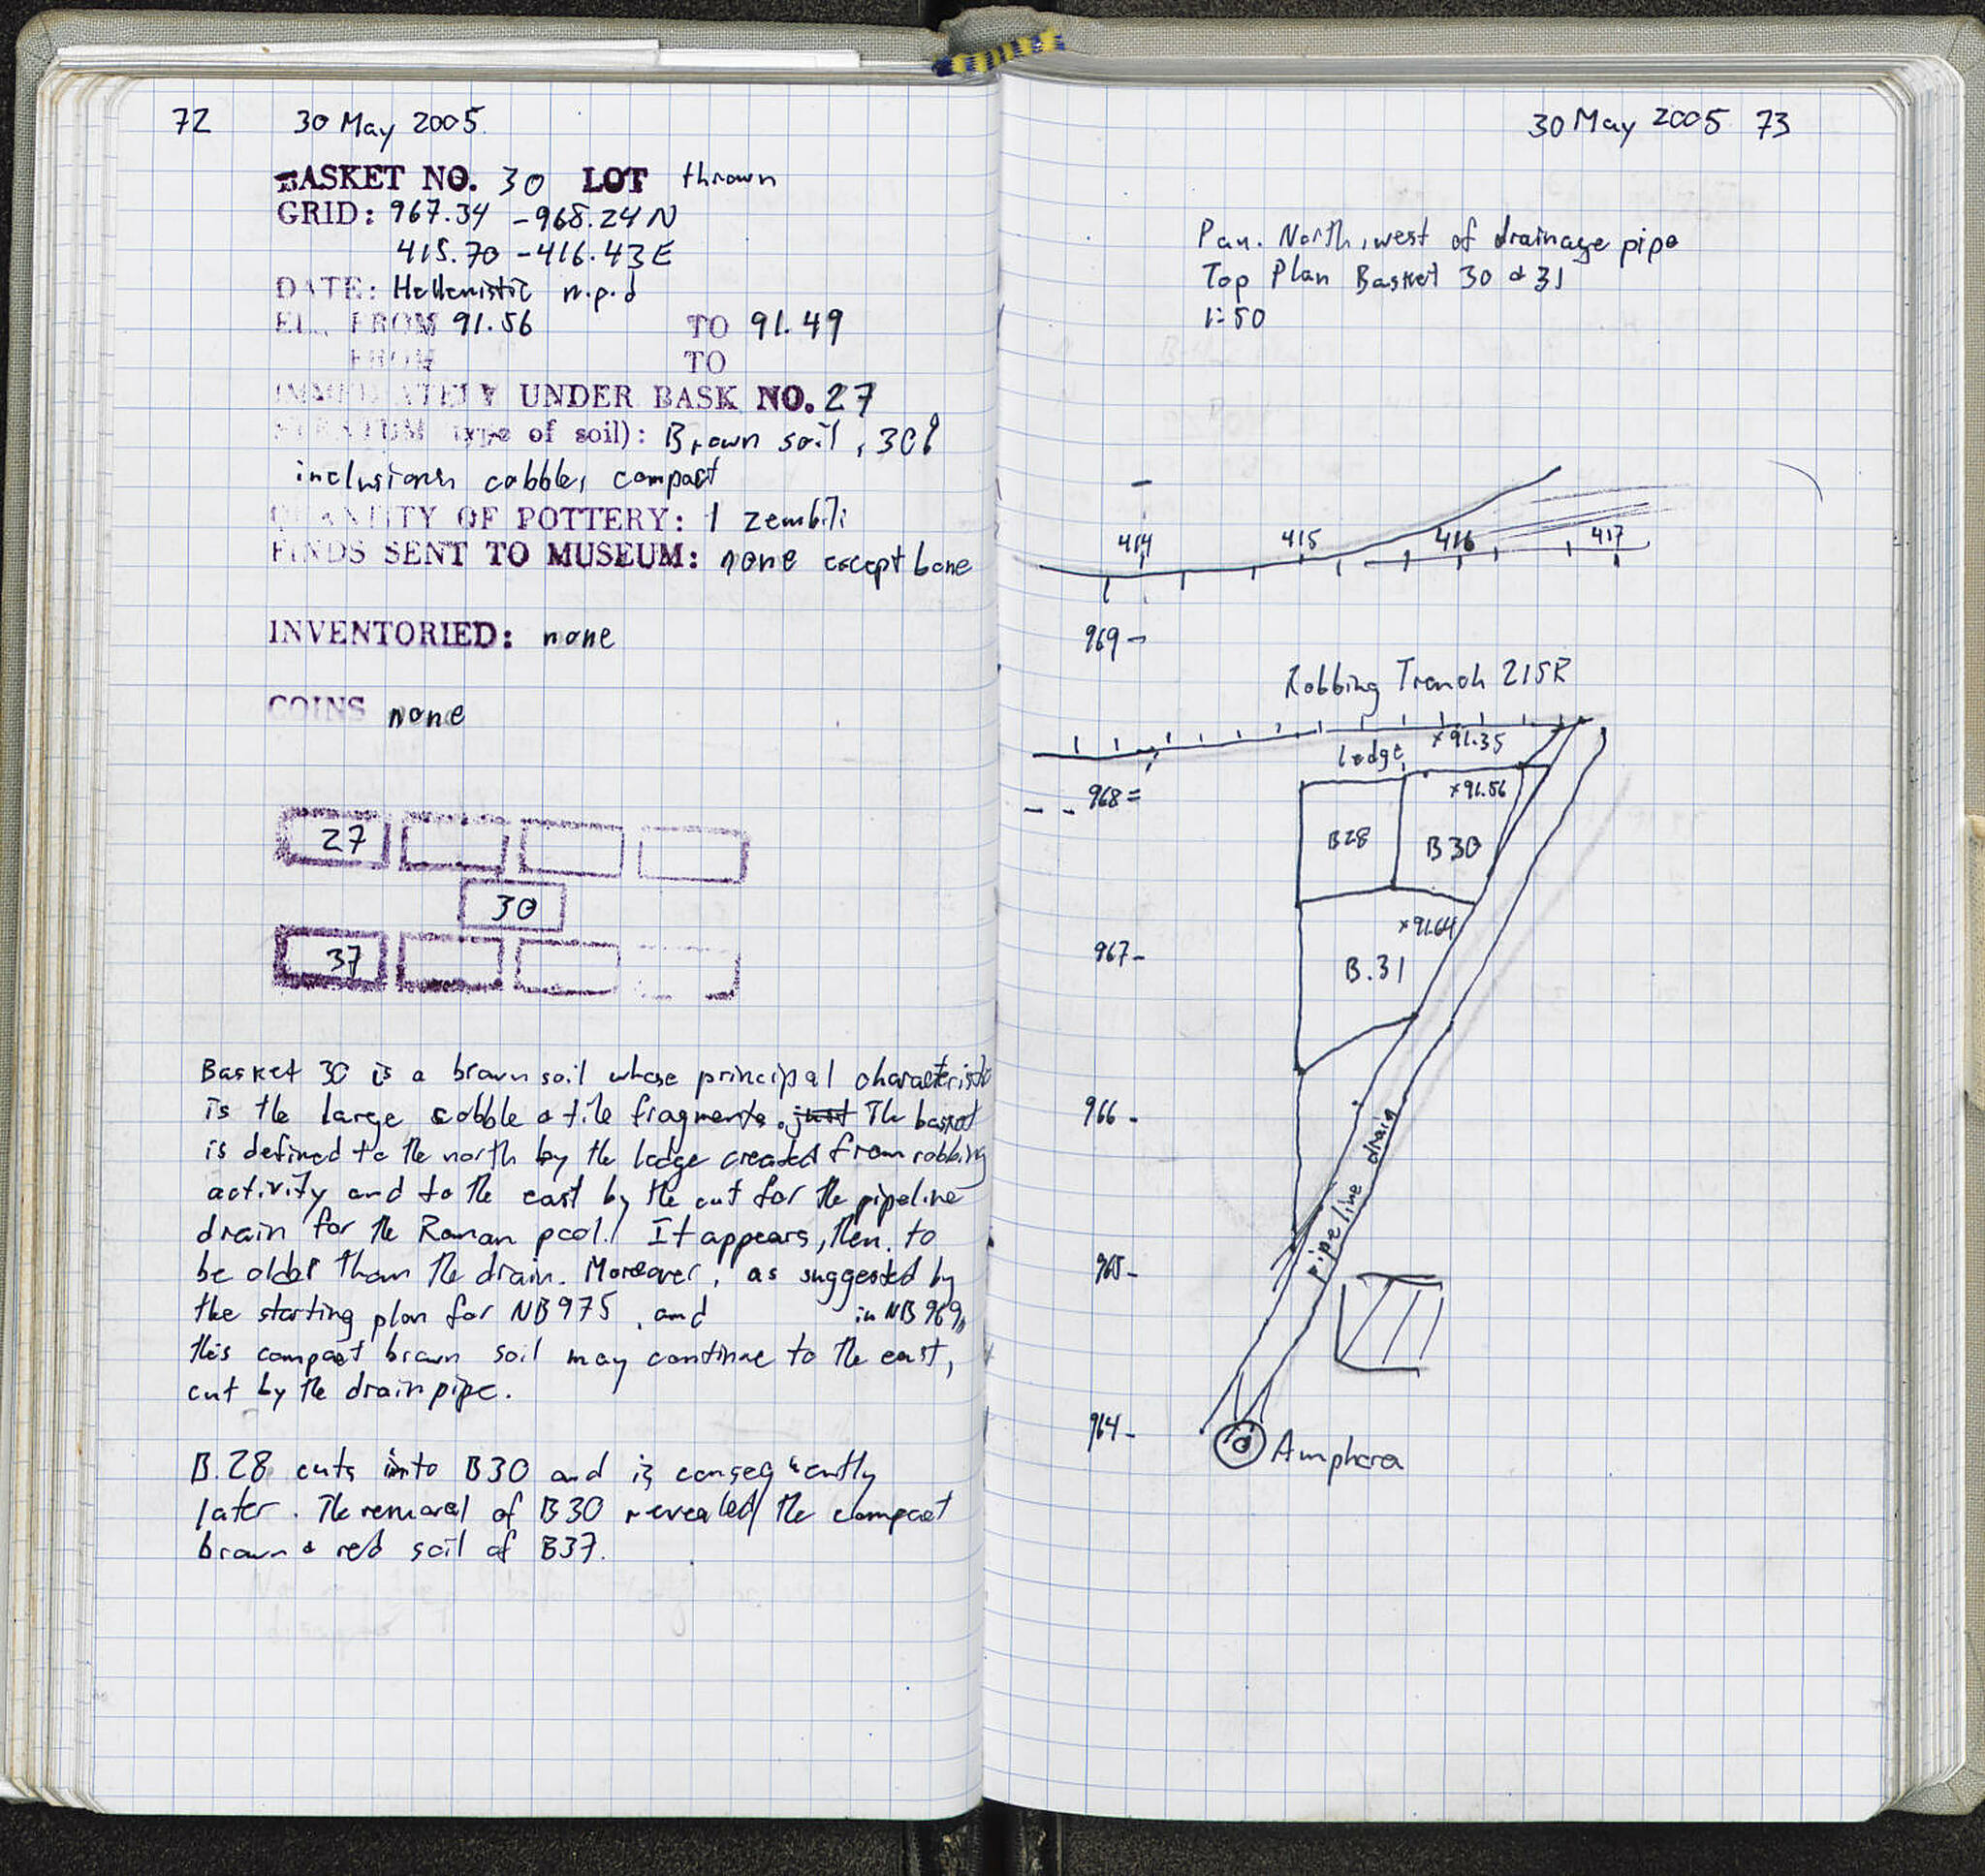 72 30 May 2005
BASKET NO. 30 LOT thrown
GRID: 967.34 - 968.24 N
415.70 - 416.43 E
DATE: Hellenistic n.p.d
EL. FROM 91.56 TO 91.49
FROM TO
IMMEDIATELY UNDER BASK NO. 27
STRATUM type of soil): Brown soil, 30%
inclusions cobble, compact
QUANTITY OF POTTERY: 1 zembili
FINDS SENT TO MUSEUM: none except bone
INVENTORIED: none
COINS none
27
30
37
Basket 30 is a brown soil whose principal characteristic
is the large cobble & tile fragments. just The basket
is defined to the north by the ledge created from robbing
activity and to the east by the cut for the pipeline
drain for the Roman pool. It appears, then, to
be older than the drain. Moreover, as suggested by
the starting plan for NB975, and in NB 969,
this compact brown soil may continue to the east,
cut by the drain pipe.
B.28 cuts into B30 and is consequently
later. The removal of B30 revealed the compact
brown & red soil of B37.
30 May 2005 73
Pan. North, west of drainage pipe
Top Plan Basket 30 & 31
1:50
414 415 416 417
969
Robbing Trench 215R
ledge x 91.35
968
x 91.56
B28 B30
x 91.64
967
B.31
966
pipeline drain
965
964
Amphora